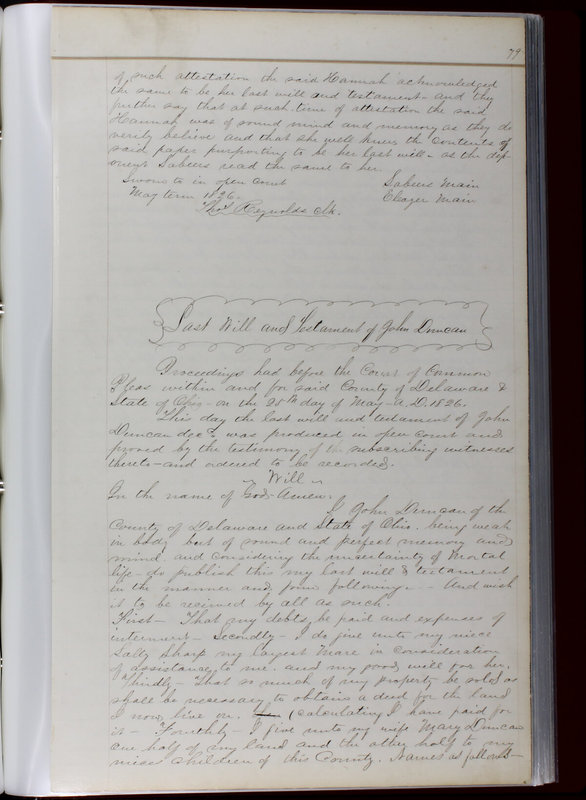 79
of such attestation the said Hannah acknowledged
the same to be her last will and testament - and they
further say that at such time of attestation the said
Hannah was of sound mind and memory as they do
verily believe and that she well knew the contents of
said paper purporting to be her last will - as the dep
onent Sabeers read the same to her.
Sworn to in open Court Sabeers Main
May term 1826. Eleazer Main
Thos Reynolds Clk.
Last Will and Testament of John Duncan
Proceedings had before the Court of Common
Pleas within and for said County of Delaware &
State of Ohio - on the 20th day of May - A.D. 1826.
This day the last will and testament of John
Duncan decd was produced in open court and
proved by the testimony of the subscribing witnesses
thereto - and ordered to be recorded.
~ Will ~
In the name of God - Amen.
I John Duncan of the
County of Delaware and State of Ohio. being weak
in body but of sound and perfect memory and
mind and considering the uncertainty of mortal
life - do publish this my last will & testament
in the manner and form following. - And wish
it to be received by all as such.
First - That my debts be paid and expenses of
interment - Secondly - I do give unto my niece
Sally Sharp my largest mare in consideration
of assistance to me. and my good will for her.
Thirdly - That so much of my property be sold as
shall be necessary to obtain a deed for the land
I now live on. (calculating I have paid for
it - Fourthly - I give unto my wife Mary Duncan
one half of my land and the other half to my
children of this County. Names as follows -